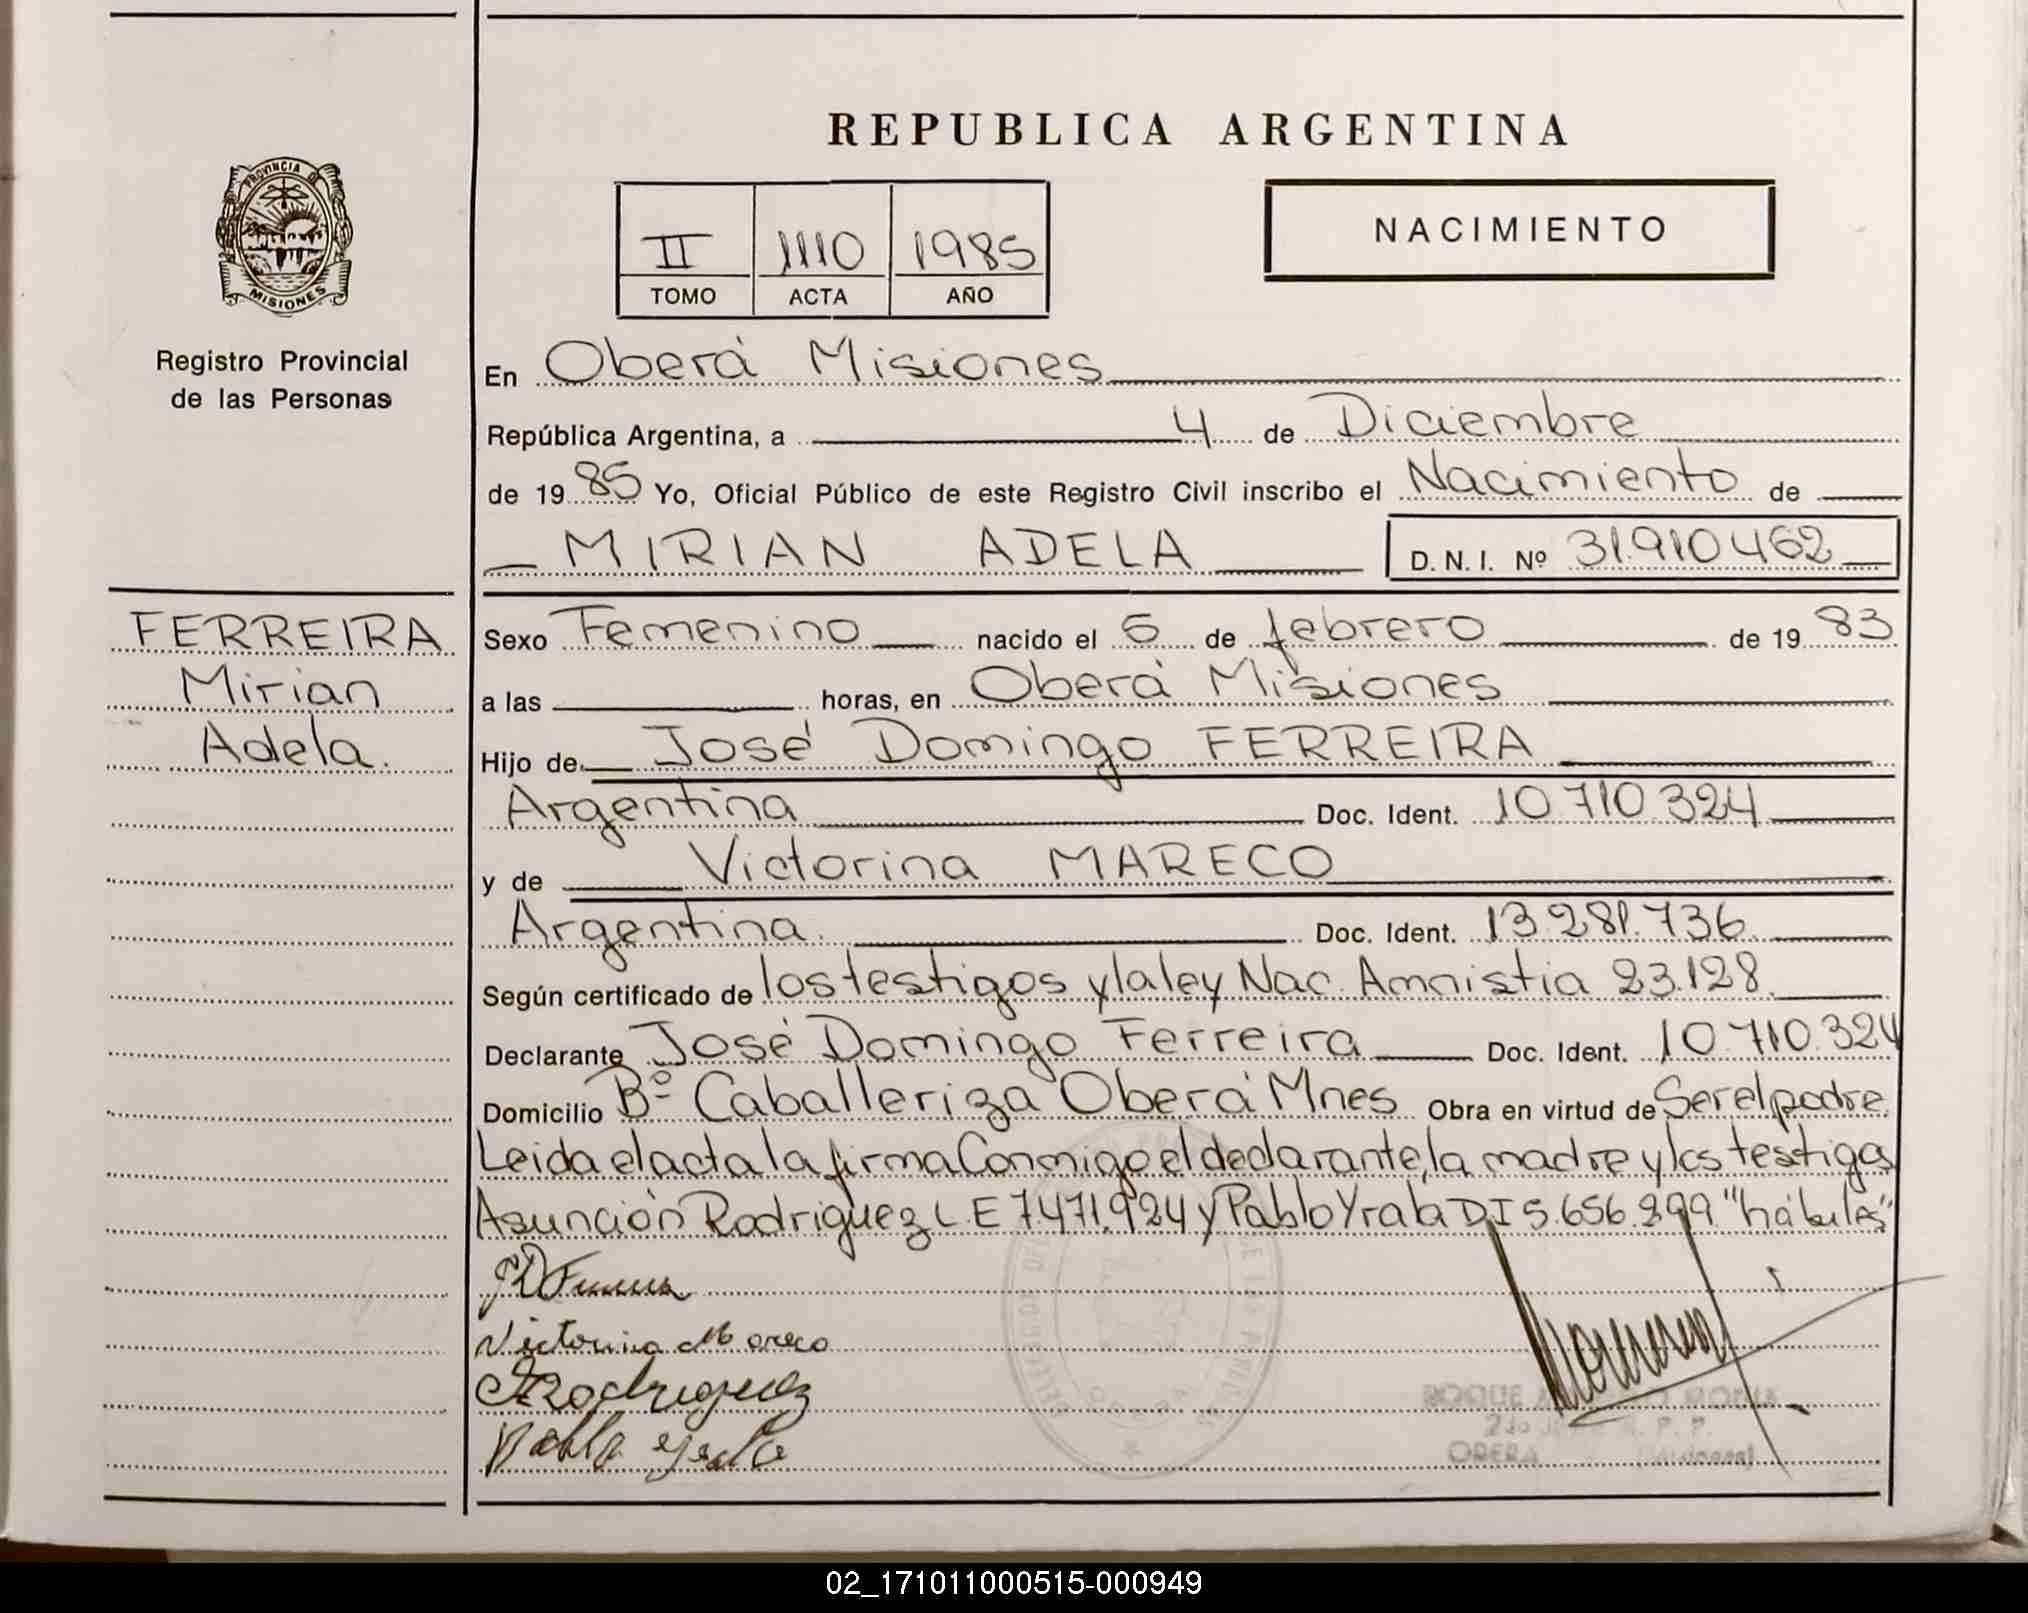 REPUBLICA ARGENTINA
PROVINCIA DE
MISIONES
Registro Provincial
de las Personas
II 1110 1985
TOMO ACTA AÑO
NACIMIENTO
En Oberá Misiones
República Argentina, a 4 de Diciembre
de 1985 Yo, Oficial Público de este Registro Civil inscribo el Nacimiento de
MIRIAN ADELA D. N. I. Nº 31.910462
FERREIRA
Mirian
Adela.
Sexo Femenino nacido el 6 de febrero de 1983
a las horas, en Oberá Misiones
Hijo de José Domingo FERREIRA
Argentina Doc. Ident. 10.710.324
y de Victorina MARECO
Argentina. Doc. Ident. 13.281.736
Según certificado de los testigos y la ley Nac. Amnistia 23.128
Declarante José Domingo Ferreira Doc. Ident. 10.710.324
Domicilio Bº Caballeriza Oberá Mnes Obra en virtud de Ser el padre.
Leida el acta la firma Conmigo el declarante, la madre y los testigos
Asunción Rodriguez L.E 7.471.924 y Pablo Yrala DI 5.656.299 "hábiles"
Victorina Mareco
Rodriguez
Pablo Yrala
OBERA
02_171011000515-000949